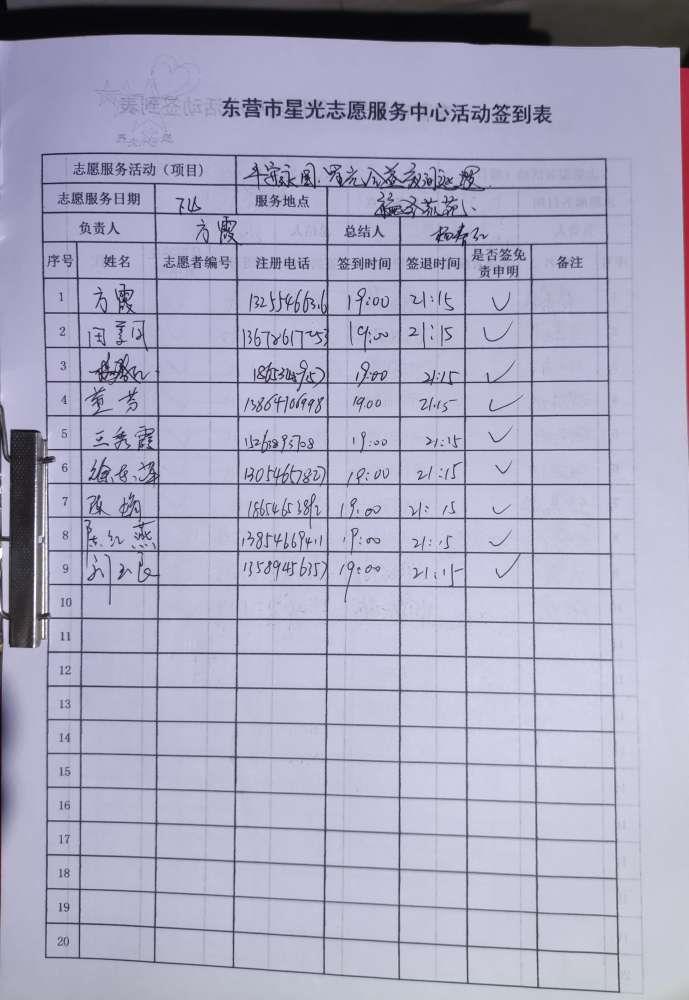 东营市星光志愿服务中心活动签到表
志愿服务活动（项目） 平安家园·星光公益夜间巡逻
志愿服务日期 7.14 服务地点
负责人 方霞 总结人
序号 姓名 志愿者编号 注册电话 签到时间 签退时间 是否签免责申明 备注
1 方霞 19:00 21:15 ✓
2 19:00 21:15 ✓
3 19:00 21:15 ✓
4 董芬 13864706998 19:00 21:15 ✓
5 王秀霞 15263893708 19:00 21:15 ✓
6 13054657827 19:00 21:15 ✓
7 陈娟 19:00 21:15 ✓
8 陈红燕 13854669411 19:00 21:15 ✓
9 刘玉良 13589456357 19:00 21:15 ✓
10
11
12
13
14
15
16
17
18
19
20